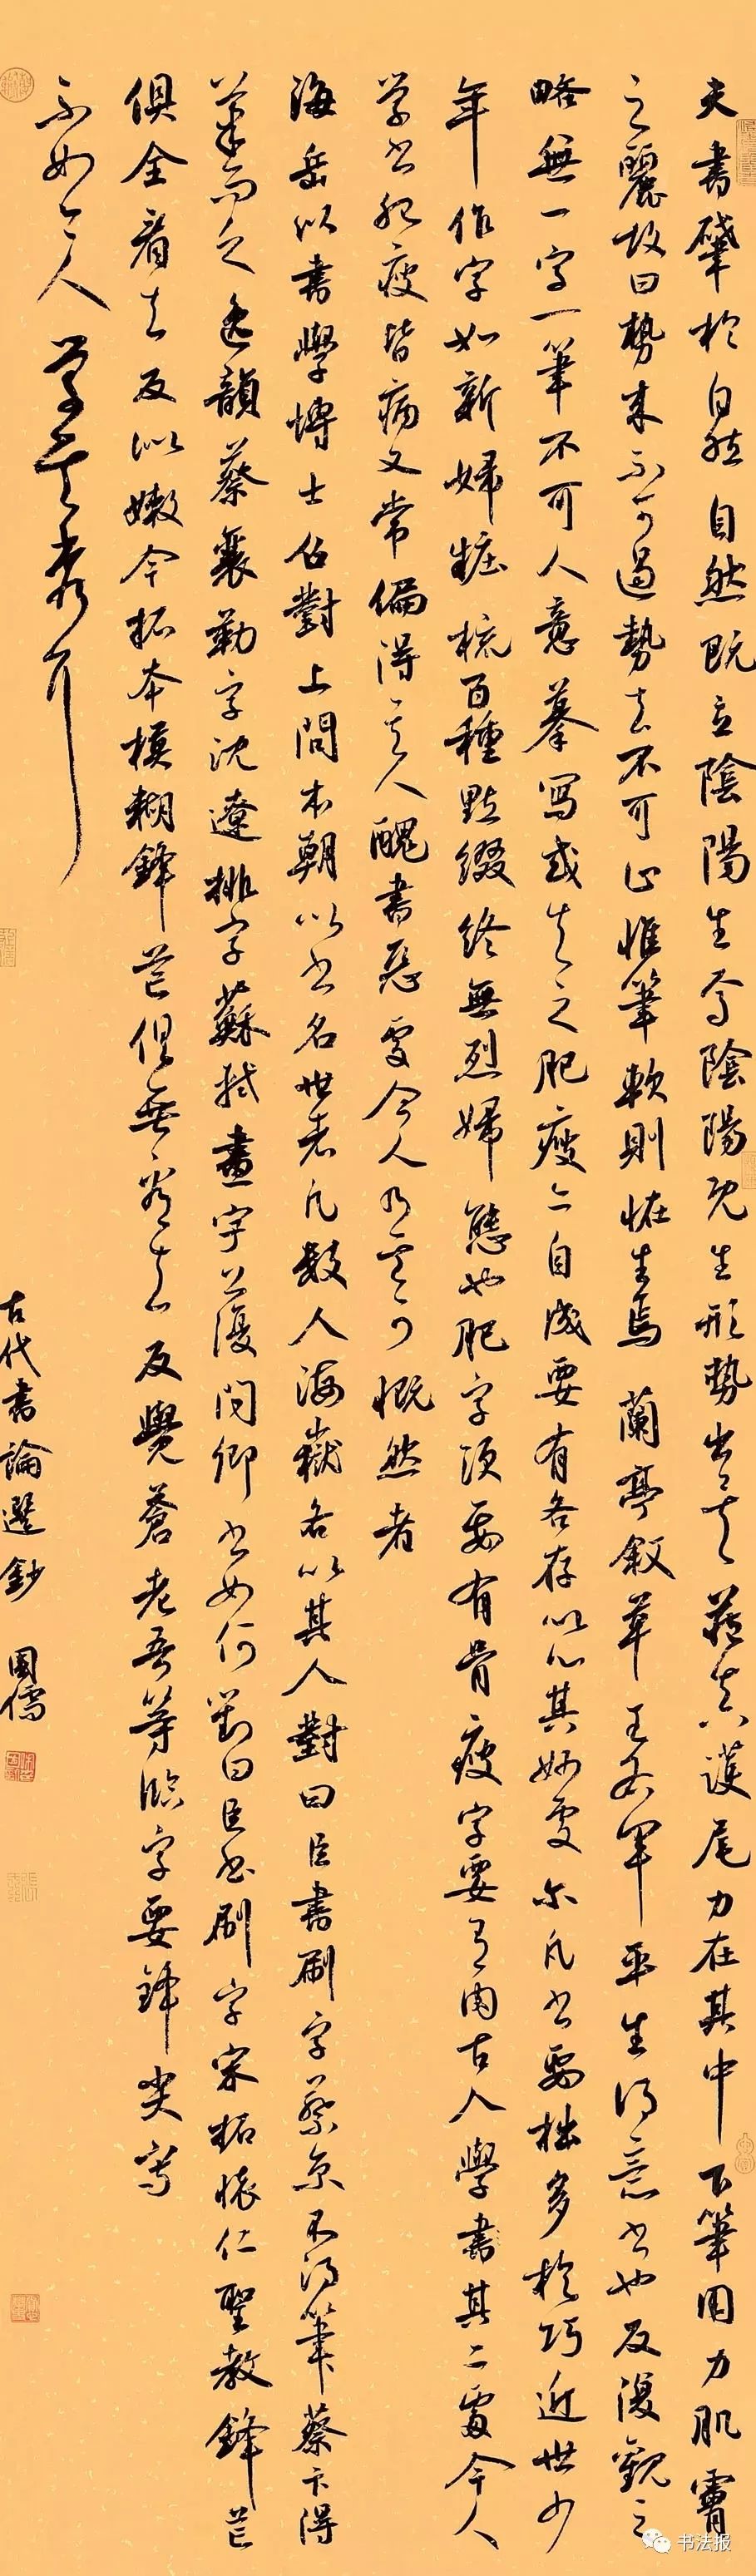 夫書肇於自然自然既立陰陽生焉陰陽既生形勢出矣藏頭護尾力在其中下筆用力肌膚
之麗故曰勢來不可遏勢去不可止惟筆軟則恠生焉 蘭亭叙草王右軍平生得意書也反復觀之
略無一字一筆不可人意摹寫或失之肥瘦亦自成要有各存以心其妙處尔凡書要拙多於巧近世少
年作字如新婦粧梳百種點綴終無烈婦態也肥字須要有骨瘦字要有肉古人學書其二處今人
學書肥瘦皆病又常偏得其人醜書惡處今人乃云可慨然者
海岳以書學博士召對上問本朝以書名世者凡數人海嶽各以其人對曰臣書刷字蔡京不得筆蔡卞得
筆而乏逸韻蔡襄勒字沈遼排字蘇軾畫字上復問卿書如何對曰臣書刷字宋拓懷仁聖教鋒芒
俱全看去反似嫩今拓本模糊鋒芒俱無看去反覺蒼老吾等臨字要鋒尖寫
不如今人
古代書論選鈔 國儒
书法报